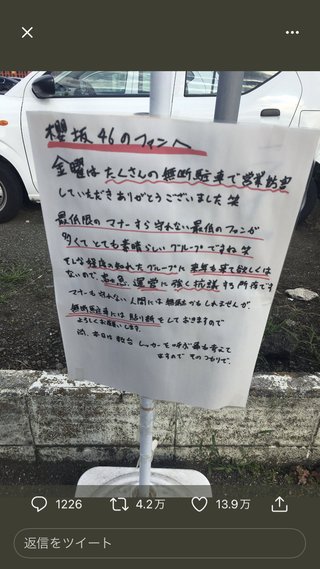 櫻坂46のファンへ
金曜はたくさんの無断駐車で営業妨害
していただきありがとうございました 笑
最低限のマナーすら守れない最低のファンが
多くてとても素晴らしいグループですね 笑
そんな程度の知れたグループに来年も来て欲しくは
ないので富急、運営に強く抗議する所存です
マナーも守れない人間には無駄かもしれませんが
無断駐車には貼り紙をしておきますので
よろしくお願いします。
尚、本日は数台レッカーを呼ぶ事も考えて
ますので そのつもりで。
1226 4.2万 13.9万
返信をツイート